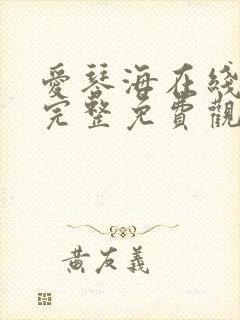 愛琴海在綫
完整免費觀
黃友義